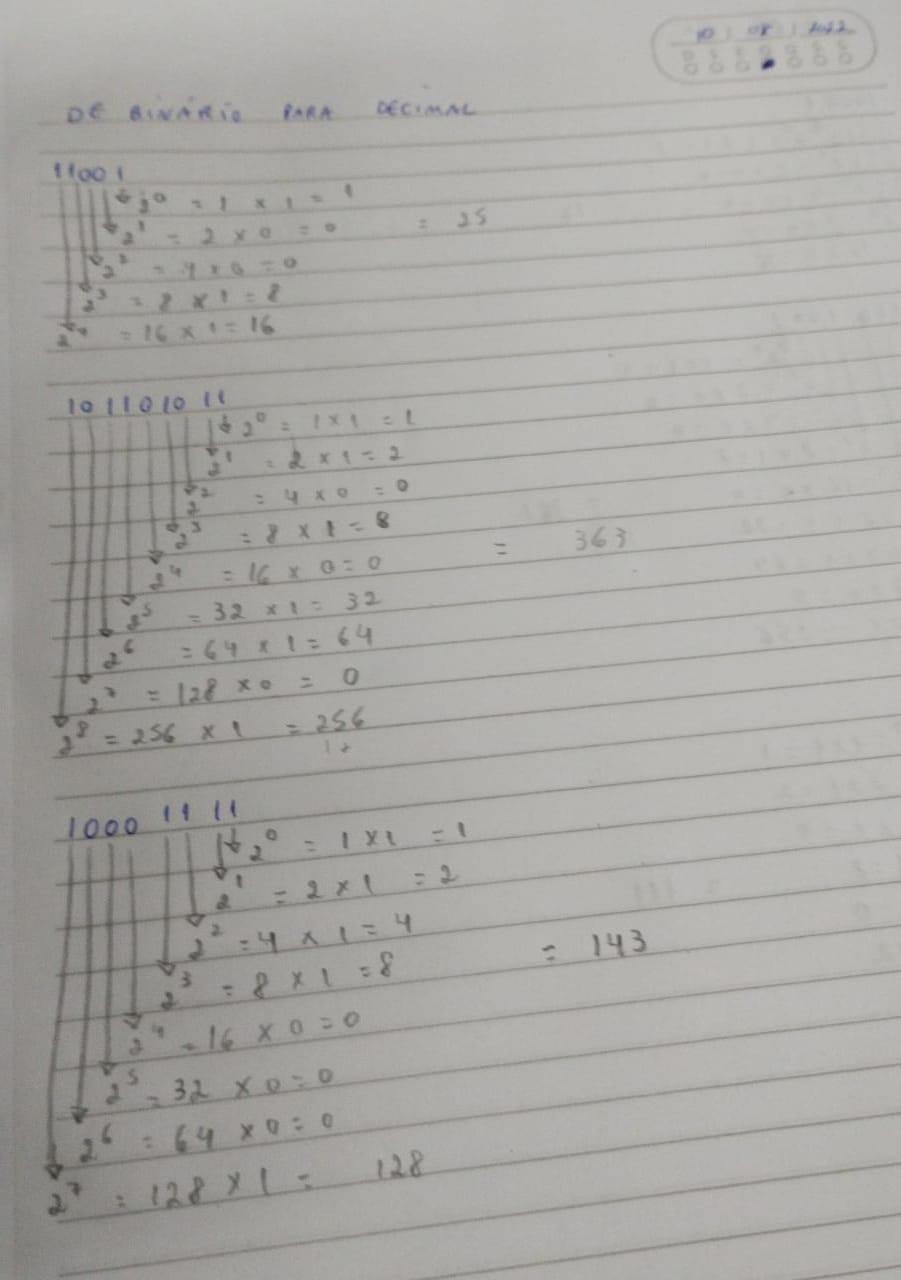 10 | 08 | 2022
DE BINÁRIO PARA DECIMAL
11001
2⁰ = 1 x 1 = 1
2¹ = 2 x 0 = 0 = 25
2² = 4 x 0 = 0
2³ = 8 x 1 = 8
2⁴ = 16 x 1 = 16
101101011
2⁰ = 1 x 1 = 1
2¹ = 2 x 1 = 2
2² = 4 x 0 = 0
2³ = 8 x 1 = 8
2⁴ = 16 x 0 = 0 = 363
2⁵ = 32 x 1 = 32
2⁶ = 64 x 1 = 64
2⁷ = 128 x 0 = 0
2⁸ = 256 x 1 = 256
10001111
2⁰ = 1 x 1 = 1
2¹ = 2 x 1 = 2
2² = 4 x 1 = 4
2³ = 8 x 1 = 8 = 143
2⁴ = 16 x 0 = 0
2⁵ = 32 x 0 = 0
2⁶ = 64 x 0 = 0
2⁷ = 128 x 1 = 128